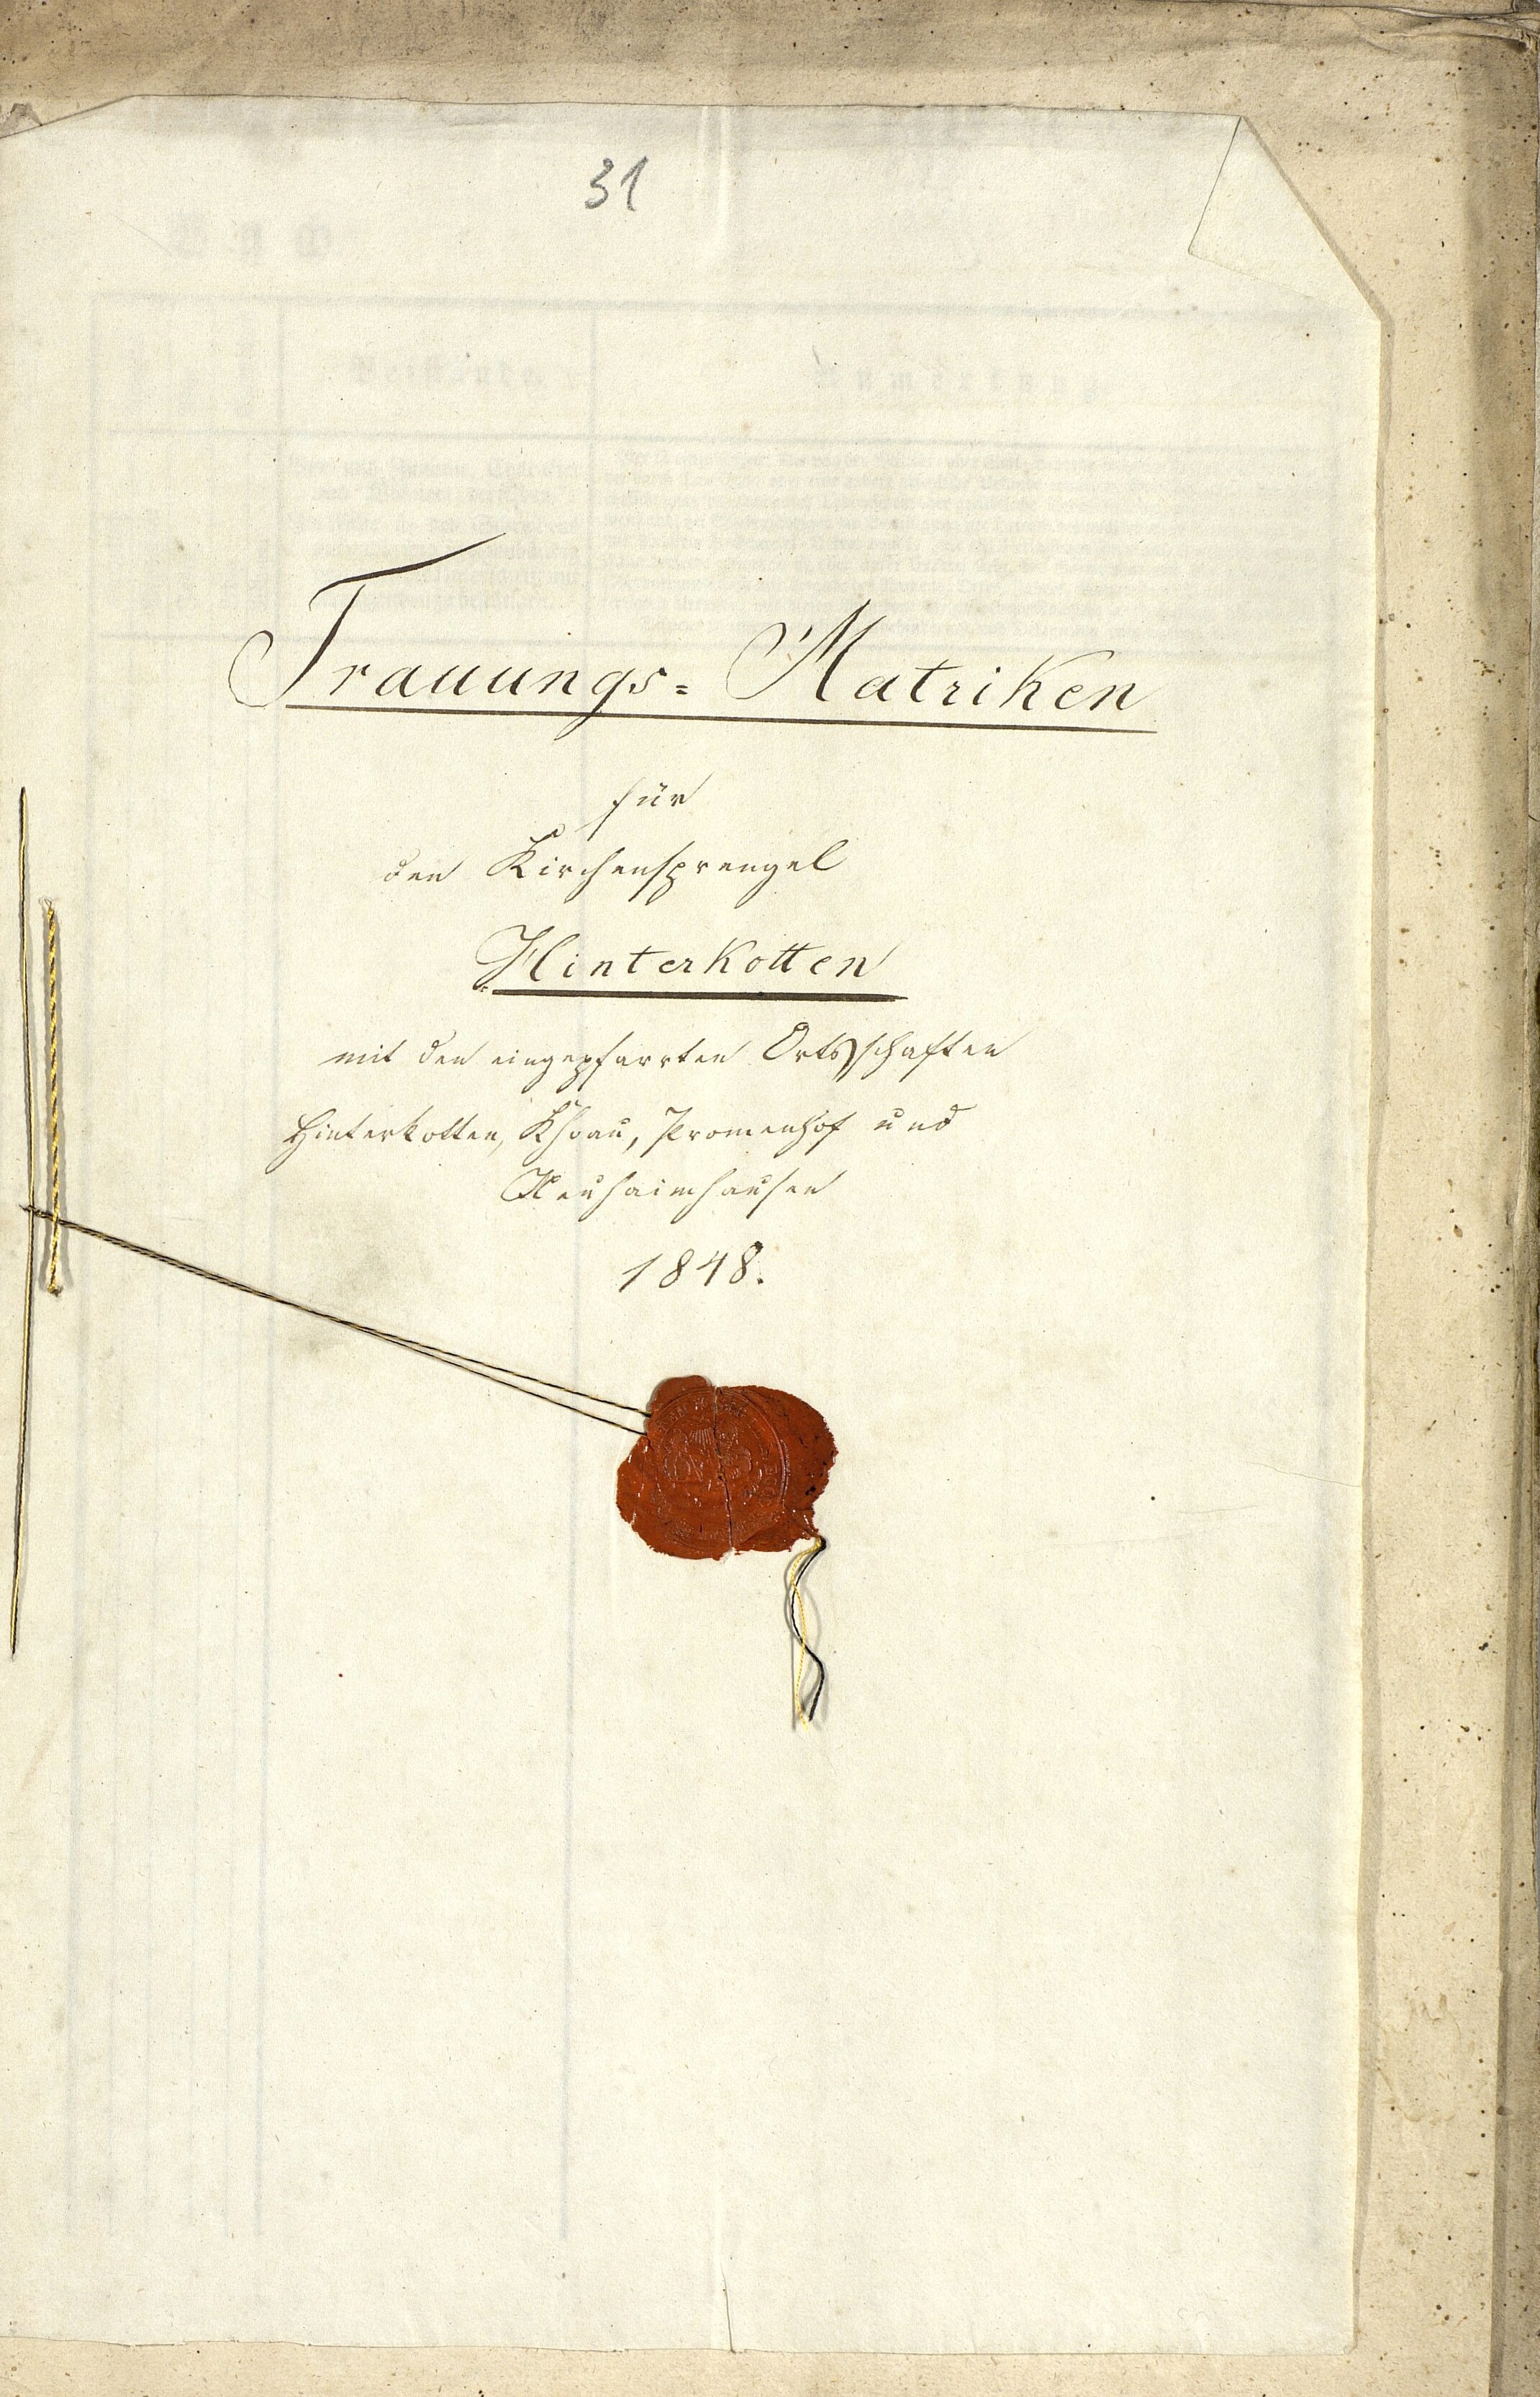 31
Trauungs= Matriken
für
den Kirchensprengel
Hinterkotten
mit den eingepfarrten Ortsschaften
Hinterkotten, Khoau, Promenhof und
Neuhaimhausen
1848.